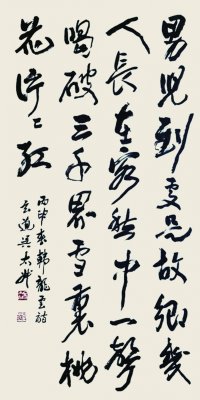 男兒到處是故鄉幾
人長在客愁中一聲
喝破三千界雪裏桃
花片〻紅
丙申韓龍雲詩